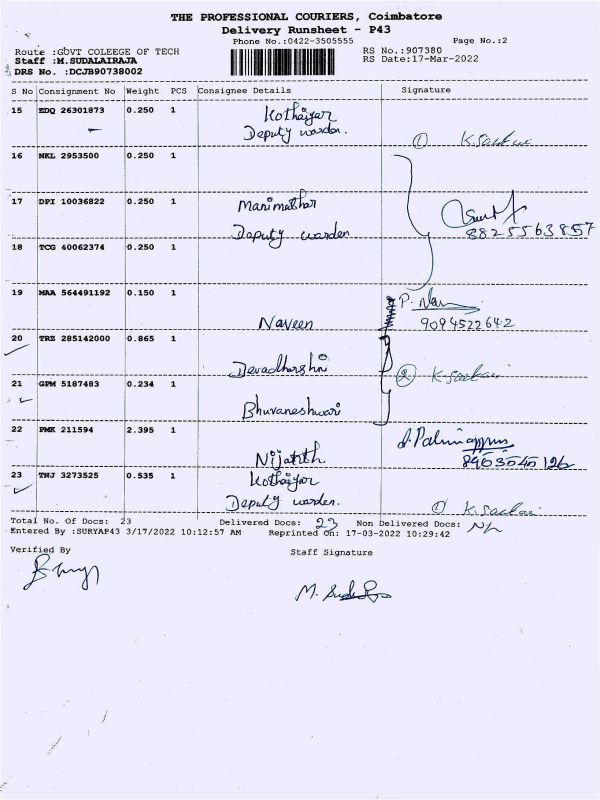 THE PROFESSIONAL COURIERS, Coimbatore
Delivery Runsheet - P43
Phone No.:0422-3505555 Page No.:2
Route :GOVT COLEEGE OF TECH RS No.:907380
Staff :M.SUDALAIRAJA RS Date:17-Mar-2022
DRS No. :DCJB90738002
S No Consignment No Weight PCS Consignee Details Signature
15 EDQ 26301873 0.250 1 Kothaiyar
Deputy warden. ① K.Sackai
16 NKL 2953500 0.250 1
17 DPI 10036822 0.250 1 Manimathar
Deputy warden 8825563857
18 TCG 40062374 0.250 1
19 MAA 564491192 0.150 1
Naveen 9094522642
20 TRZ 285142000 0.865 1
Devadharshni
21 GPM 5187483 0.234 1 ② K.Sackai
Bhuvaneshwari
22 PMK 211594 2.395 1
Nijatith
23 TNJ 3273525 0.535 1 Kothaiyar
Deputy warden. ① K.Sackai
Total No. Of Docs: 23 Delivered Docs: 23 Non Delivered Docs: NIL
Entered By :SURYAP43 3/17/2022 10:12:57 AM Reprinted On: 17-03-2022 10:29:42
Verified By Staff Signature